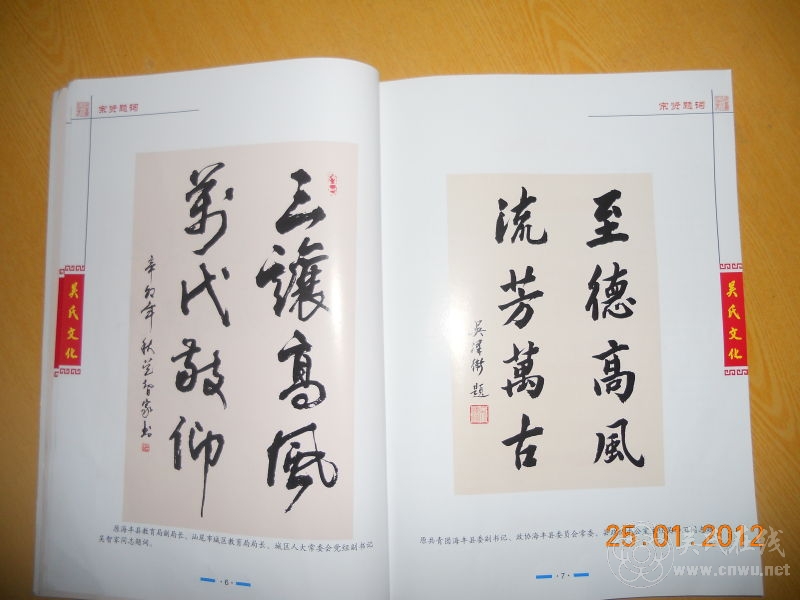 宗贤题词
三讓高風
萬代敬仰
辛卯年秋吴智家书
吴氏文化
原海丰县教育局副局长、汕尾市城区教育局局长、城区人大常委会党组副书记
吴智家同志题词。
·6·
宗贤题词
至德高風
流芳萬古
吴泽衡题
吴氏文化
原共青团海丰县委副书记、政协海丰县委员会常委、
·7·
25.01.2012
吴氏在线
www.cnwu.net